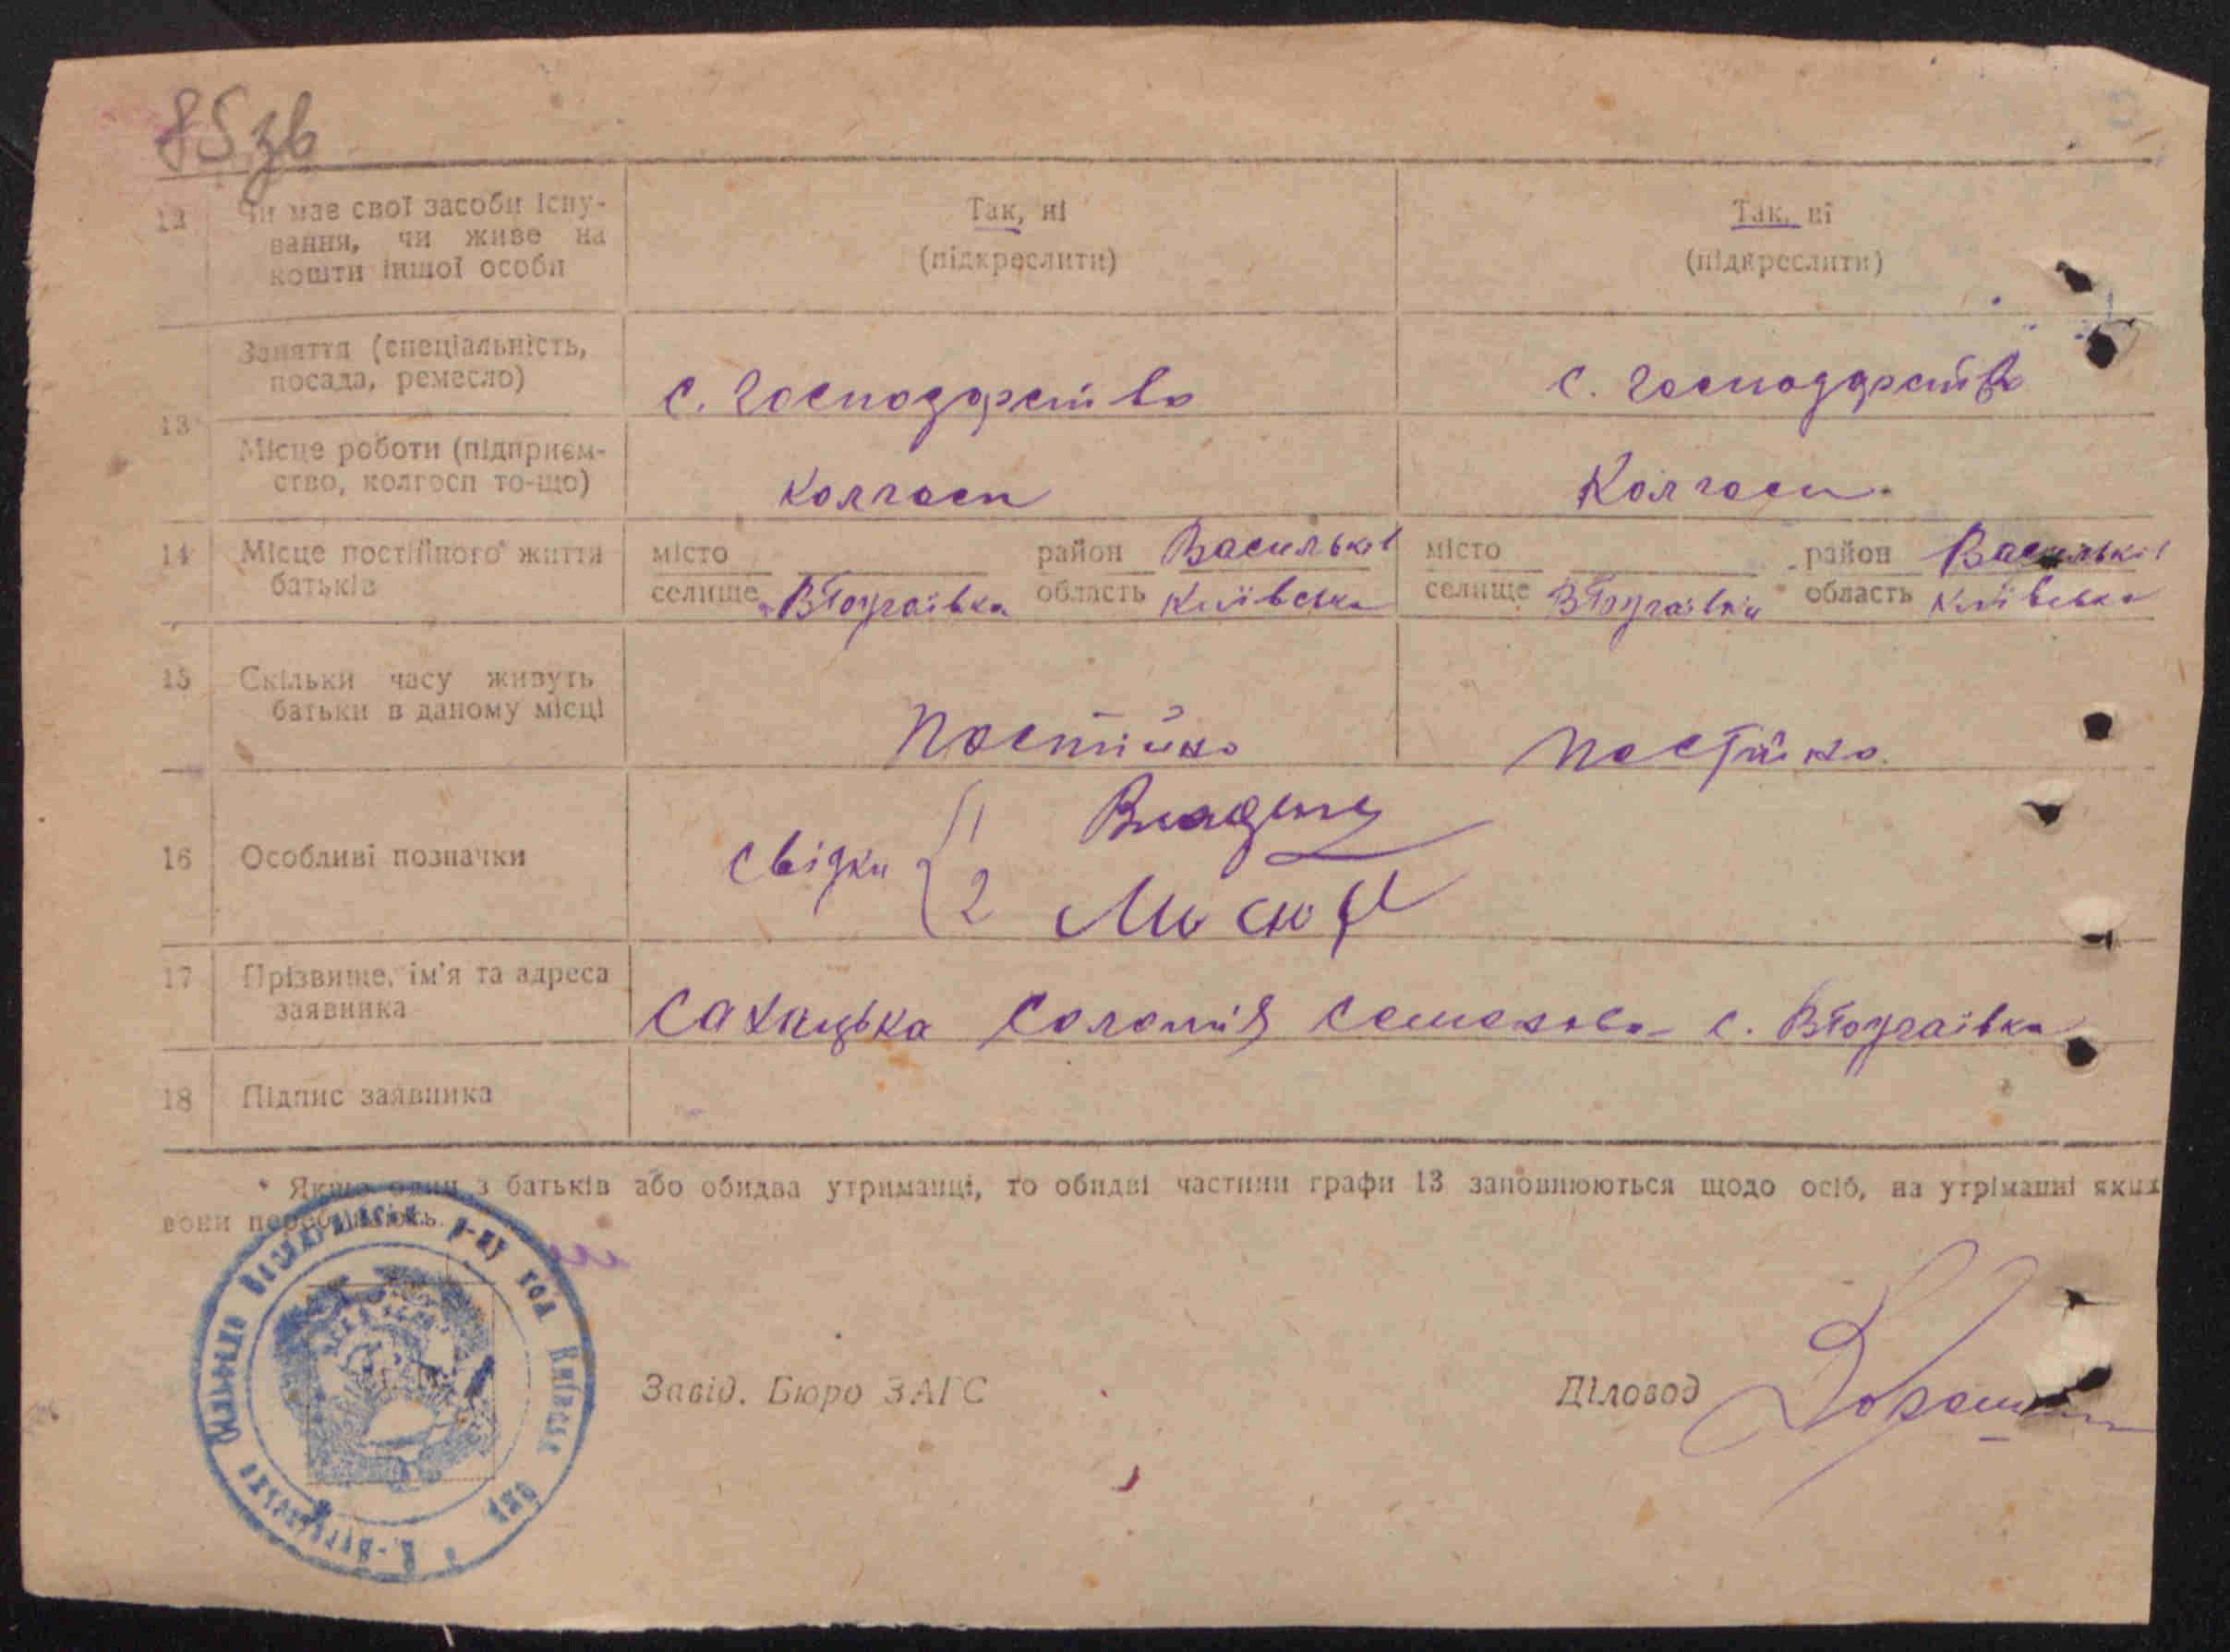 85 зв
12 Чи має свої засоби існу- Так, ні Так, ні
вання, чи живе на (підкреслити) (підкреслити)
кошти іншої особи
Заняття (спеціальність,
посада, ремесло) с. господарство с. господарство
13
Місце роботи (підприєм-
ство, колгосп то-що) колгосп Колгосп
14 Місце постійного життя місто район Васильків місто район Васильків
батьків селище область Київська селище область Київська
15 Скільки часу живуть
батьки в даному місці постійно постійно
16 Особливі позначки свідки 1
2
17 Прізвище, ім'я та адреса
заявника Сахацька Соломія с.
18 Підпис заявника
* Якщо один з батьків або обидва утриманці, то обидві частини графи 13 заповнюються щодо осіб, на утріманні яких
вони перебувають.
Завід. Бюро ЗАГС Діловод